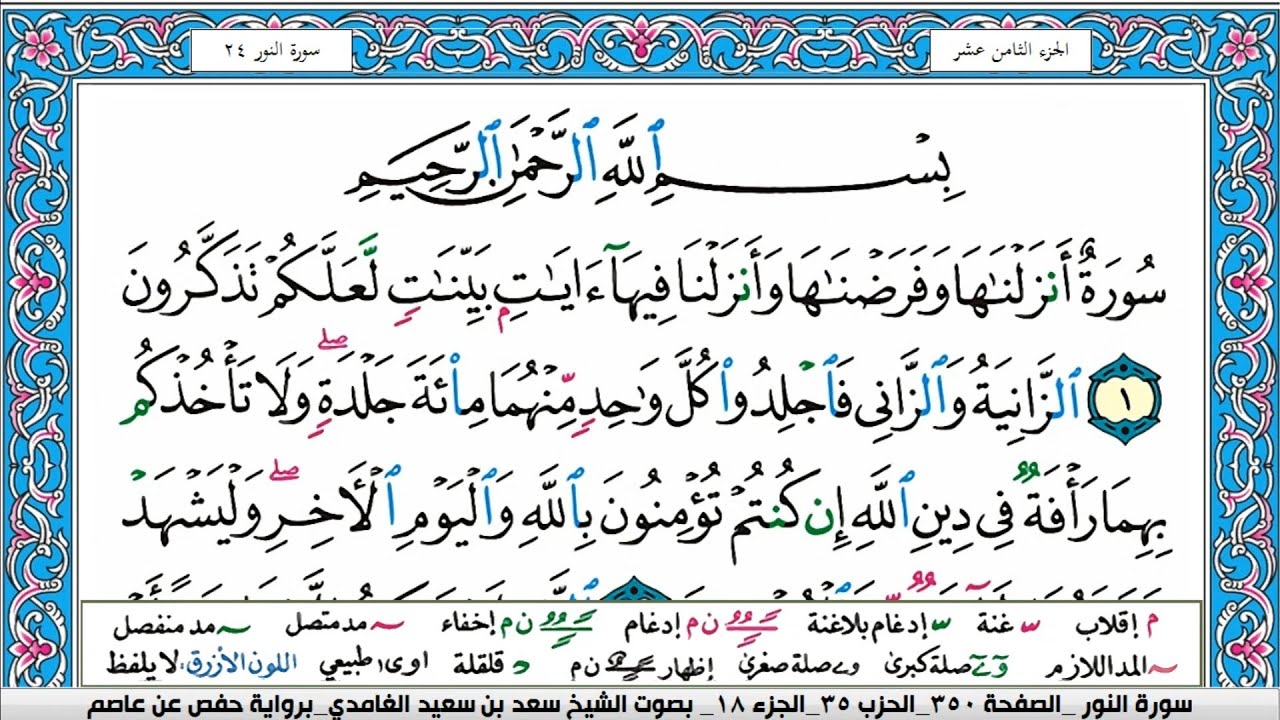 الجزء الثامن عشر
سورة النور ٢٤
بِسْمِ ٱللَّهِ ٱلرَّحْمَٰنِ ٱلرَّحِيمِ
سُورَةٌ أَنزَلْنَٰهَا وَفَرَضْنَٰهَا وَأَنزَلْنَا فِيهَآ ءَايَٰتٍۭ بَيِّنَٰتٍ لَّعَلَّكُمْ تَذَكَّرُونَ
١ ٱلزَّانِيَةُ وَٱلزَّانِى فَٱجْلِدُوا۟ كُلَّ وَٰحِدٍ مِّنْهُمَا مِا۟ئَةَ جَلْدَةٍ ۖ وَلَا تَأْخُذْكُم
بِهِمَا رَأْفَةٌ فِى دِينِ ٱللَّهِ إِن كُنتُمْ تُؤْمِنُونَ بِٱللَّهِ وَٱلْيَوْمِ ٱلْأَخِرِ ۖ وَلْيَشْهَدْ
م إقلاب ـّ غنة ـّ إدغام بلاغنة ن م إدغام ن م إخفاء ~ مد متصل ~ مد منفصل
~ المد اللازم صلة كبرى صلة صغرى إظهار ن م قلقلة اوى طبيعي اللون الأزرق: لا يلفظ
سورة النور _الصفحة ٣٥٠_الحزب ٣٥_الجزء ١٨_ بصوت الشيخ سعد بن سعيد الغامدي_برواية حفص عن عاصم